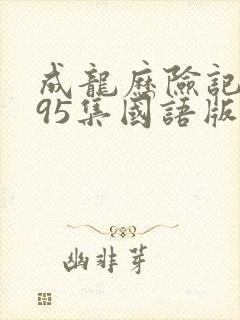 成龍歷險記
95集國語版
幽非芽